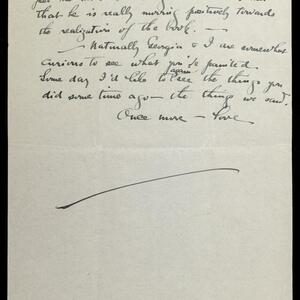 that he is really moving positively towards
the realization of the book. —
— Naturally Georgia & I are somewhat
curious to see what you've painted.
Some day I'd like to see again the things you
did some time ago — the things we saw.
Once more — Love